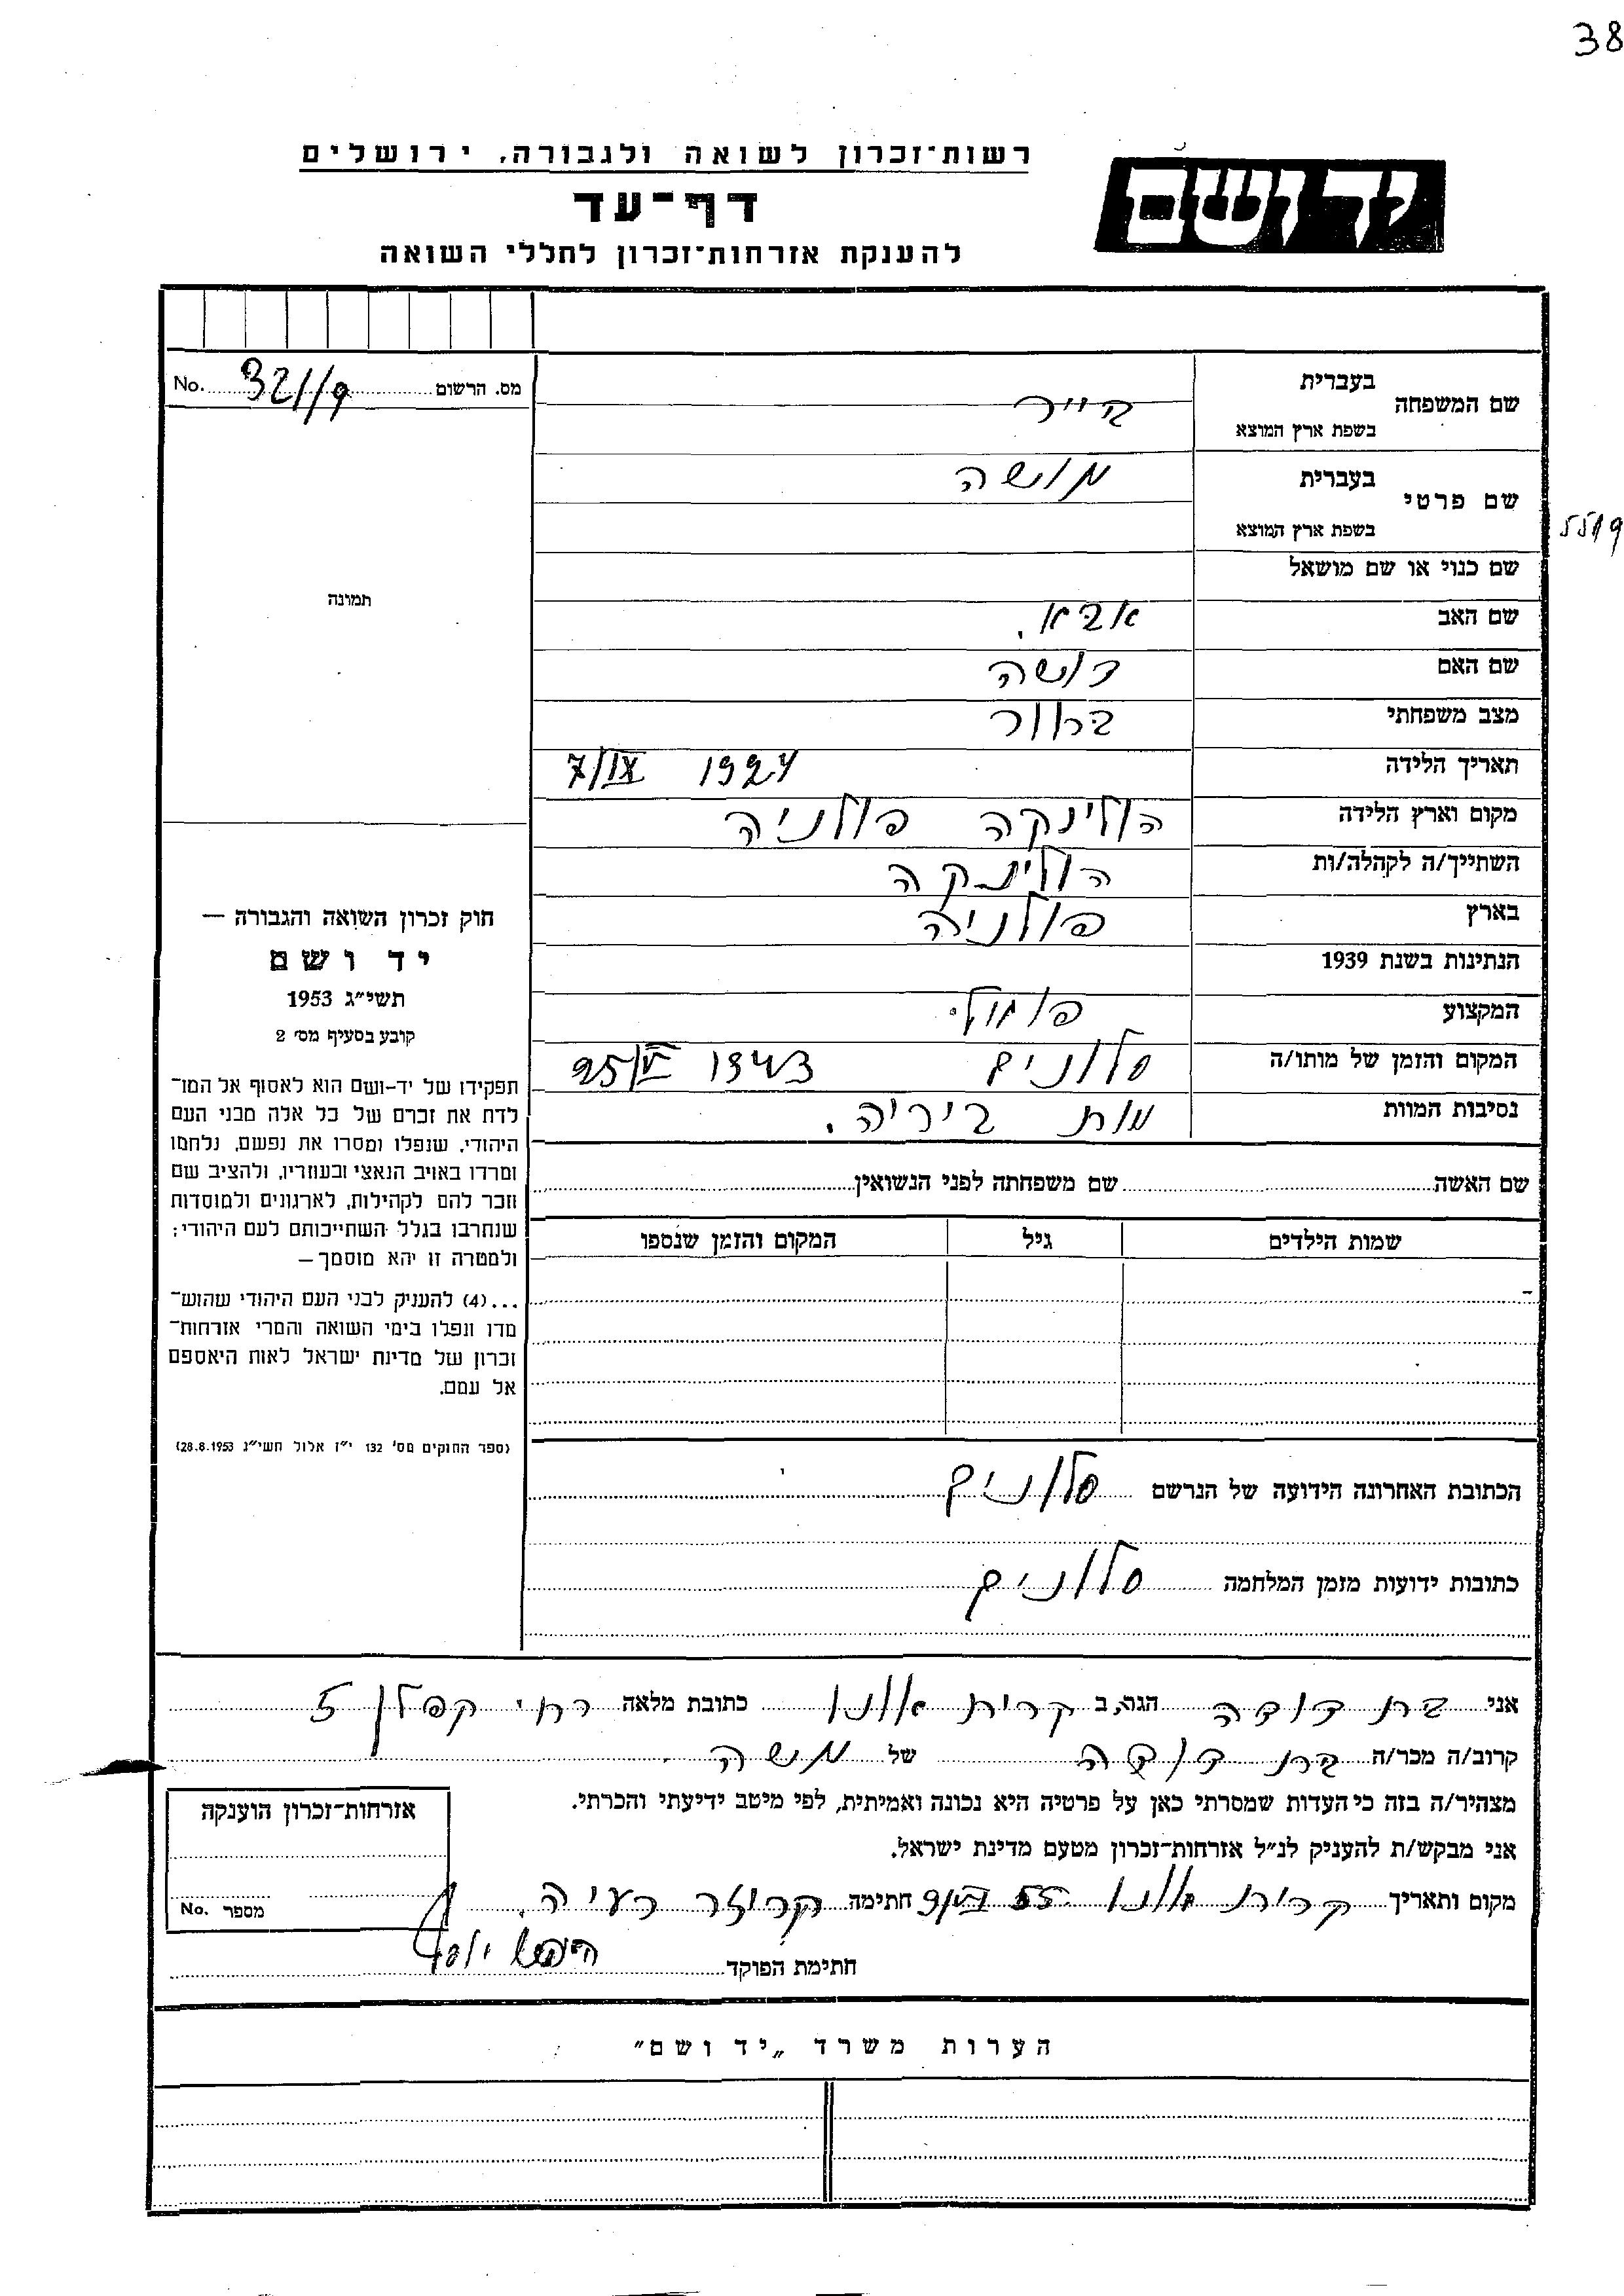 38
רשות־זכרון לשואה ולגבורה, ירושלים
יד ושם
דף־עד
להענקת אזרחות־זכרון לחללי השואה
מס. הרשום 321/9 No.
שם המשפחה בעברית
בשפת ארץ המוצא
שם פרטי בעברית מושה
בשפת ארץ המוצא
5519
שם כנוי או שם מושאל
תמונה
שם האב אבא.
שם האם דושה
מצב משפחתי בחור
תאריך הלידה 1924 7/IX
מקום וארץ הלידה הולינקה פולניה
השתייך/ה לקהלה/ות הולינקה
בארץ פולניה
הנתינות בשנת 1939
המקצוע פועל.
המקום והזמן של מותו/ה סלונים 1943
נסיבות המוות מות ביריה.
שם האשה שם משפחתה לפני הנשואין
שמות הילדים גיל המקום והזמן שנספו
חוק זכרון השואה והגבורה —
יד ושם
תשי״ג 1953
קובע בסעיף מס׳ 2
תפקידו של יד-ושם הוא לאסוף אל המו־
לדת את זכרם של כל אלה מבני העם
היהודי, שנפלו ומסרו את נפשם, נלחמו
ומרדו באויב הנאצי ובעוזריו, ולהציב שם
וזכר להם לקהילות, לארגונים ולמוסדות
שנחרבו בגלל השתייכותם לעם היהודי;
ולמטרה זו יהא מוסמך —
...(4) להעניק לבני העם היהודי שהוש־
מדו ונפלו בימי השואה והמרי אזרחות־
זכרון של מדינת ישראל לאות היאספם
אל עמם.
(ספר החוקים מס׳ 132 י״ז אלול תשי״ג 28.8.1953)
הכתובת האחרונה הידועה של הנרשם סלונים
כתובות ידועות מזמן המלחמה סלונים
אני בת דודה הגר, ב קרית אונו כתובת מלאה רח׳ קפלן 5
קרוב/ה מכר/ה בת דודה של משה
מצהיר/ה בזה כי העדות שמסרתי כאן על פרטיה היא נכונה ואמיתית, לפי מיטב ידיעתי והכרתי.
אני מבקש/ת להעניק לנ״ל אזרחות־זכרון מטעם מדינת ישראל.
מקום ותאריך קרית אונו חתימה
חתימת הפוקד
אזרחות־זכרון הוענקה
מספר No.
הערות משרד „יד ושם״